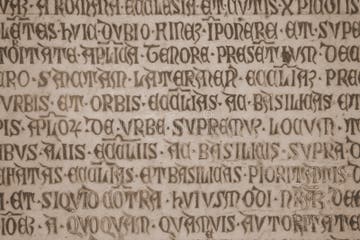 A ROMANA ECCLESIA ET CUIUS
HUIC DUBIO FINEM IPONERE ET SUPE
TORITATE APLICA TENORE PRESETIUM DECE
SANCTAM LATERANEN ECCLIAZ PRE
URBIS ET ORBIS ECCLIAS AC BASILICAS
APLOZ DE URBE SUPREMUZ LOCUM
IBUS ALIIS ECCLIIS AC BASILICIS SUPRA
ECCLIAS ET BASILICAS PIORITATIS
ET SIQUID COTRA HUIUSMODI
A QUOQUAM QUAMVIS AUTORITATE